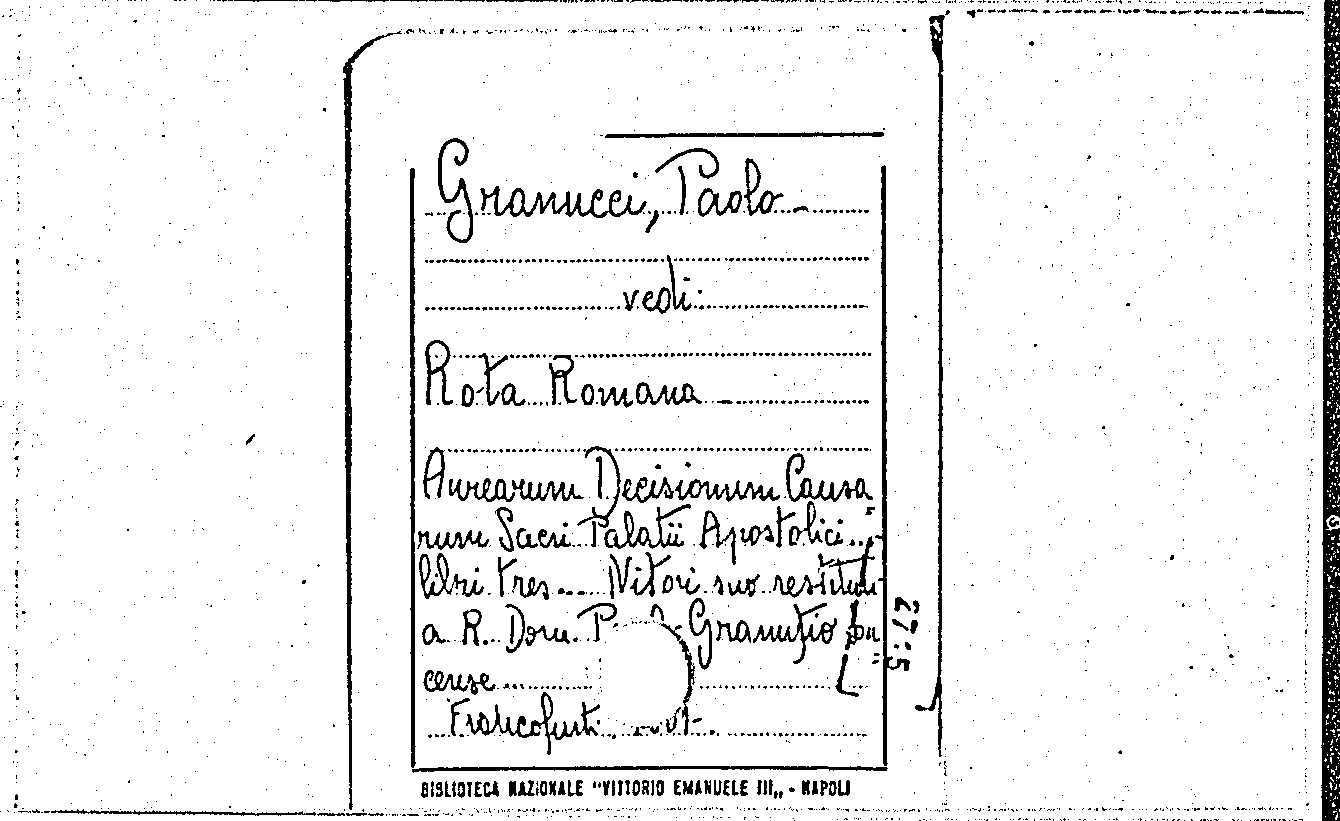 Granucci, Paolo -
vedi:
Rota Romana -
Aurearum Decisionum Causa"
rum Sacri Palatii Apostolici...
libri tres... Nitori suo restituti
a R. Dom. Granutio Lu"
cense...
Francofurti
27:5
BIBLIOTECA NAZIONALE "VITTORIO EMANUELE III„ - NAPOLI